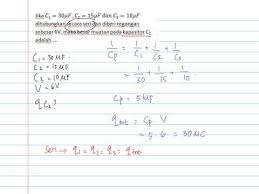 Jika C₁ = 30μF, C₂ = 15μF dan C₃ = 10μF
dihubungkan secara seri dan diberi tegangan
sebesar 6V, maka besar muatan pada kapasitor C₂
adalah ....
C₁ = 30 MF
C₂ = 15 MF
C₃ = 10 MF
V = 6V
q C₂ ?
1/Cp = 1/C₁ + 1/C₂ + 1/C₃
= 1/30 + 1/15 + 1/10
Cp = 5 MF
qtot = Cp V
= 5 . 6 = 30 MC
Seri → q₁ = q₂ = q₃ = qtot